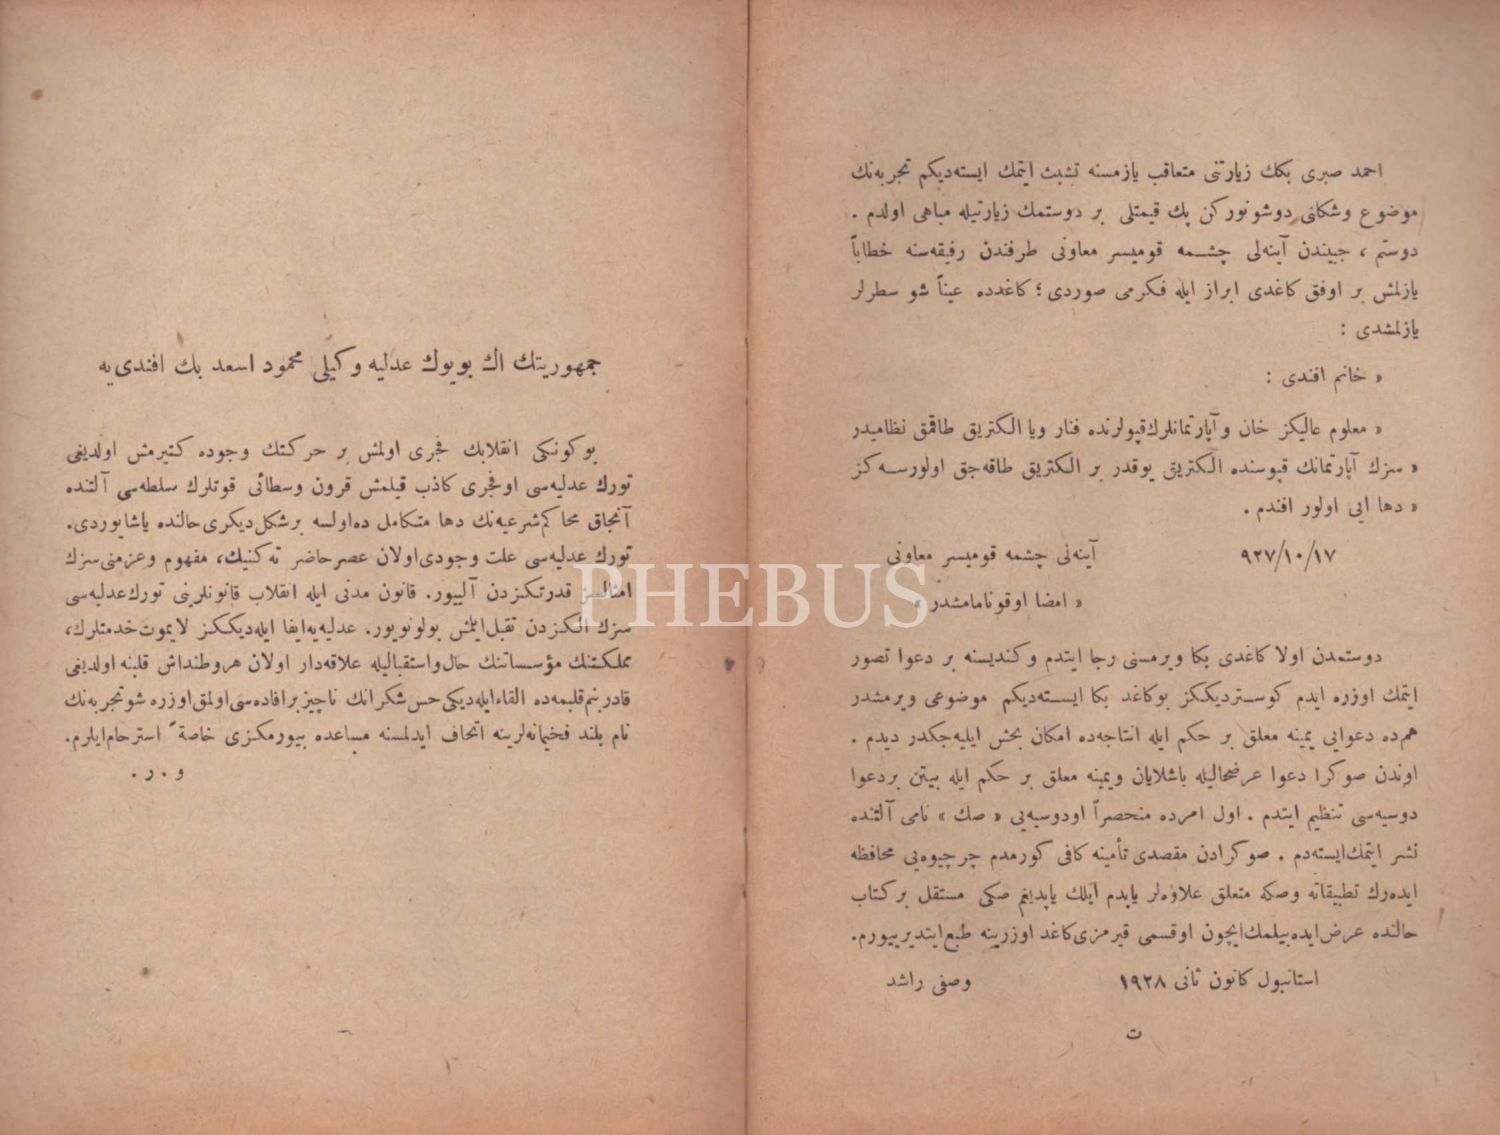 احمد صبری بكك زیارتنی متعاقب یازمسنه تشبث ایتمك ایسته‌دیكم تجربه‌نك
موضوع وشكلنی دوشونوركن پك قیمتلی بر دوستمك زیارتیله مباهی اولدم .
دوستم ، جیبندن آینه‌لی چشمه قومیسر معاونی طرفندن رفیقه‌سنه خطاباً
یازلمش بر اوفق كاغدی ابراز ایله فكرمی صوردی ؛ كاغدده عیناً شو سطرلر
یازلمشدی :
« خانم افندی :
« معلوم عالیكز خان و آپارتمانلرك قپولرنده فنار ویا الكتریق طاقمق نظامیدر
« سزك آپارتمانك قپوسنده الكتریق یوقدر بر الكتریق طاقه‌جق اولورسه‌كز
« دها ایی اولور افندم .
٩٢٧/١٠/١٧ آینه‌لی چشمه قومیسر معاونی
« امضا اوقونامامشدر »
دوستمدن اولا كاغدی بكا ویرمسنی رجا ایتدم وكندیسنه بر دعوا تصور
ایتمك اوزره ایدم كوستردیككز بوكاغد بكا ایسته‌دیكم موضوعی ویرمشدر
هم‌ده دعوایی یمینه معلق بر حكم ایله انتاجه‌ده امكان بخش ایلیه‌جكدر دیدم .
اوندن صوكرا دعوا عرضحالیله باشلایان ویمینه معلق بر حكم ایله بیتن بردعوا
دوسیه‌سی تنظیم ایتدم . اول امرده منحصراً اودوسیه‌یی « صك » نامی آلتنده
نشر ایتمك ایسته‌دم . صوكرادن مقصدی تأمینه كافی كورمدم چرچیوه‌یی محافظه
ایده‌رك تطبیقاته وصكه متعلق علاوه‌لر یاپدم ایلك یاپدیغم صكی مستقل بر كتاب
حالنده عرض ایده بیلمك ایچون اوقسمی قیرمزی كاغد اوزرینه طبع ایتدیرییورم.
استانبول كانون ثانی ١٩٢٨ وصفی راشد
ت
جمهوریتك اك بویوك عدلیه وكیلی محمود اسعد بك افندی‌یه
بوكونكی انقلابك فجری اولمش بر حركتك وجوده كتیرمش اولدیغی
تورك عدلیه‌سی اوفجری كاذب قیلمش قرون وسطائی قوتلرك سلطه‌سی آلتنده
آنجاق محاكم شرعیه‌نك دها متكامل ده‌اولسه برشكل دیكری حالنده یاشایوردی.
تورك عدلیه‌سی علت وجودی‌اولان عصر حاضر ته‌كنیك، مفهوم وعزمنی سزك
امثالسز قدرتكزدن آلییور. قانون مدنی ایله انقلاب قانونلرینی تورك عدلیه‌سی
سزك الكزدن تقبل ایلمش بولونویور. عدلیه‌یه ایفا ایله‌دیككز لایموت خدمتلرك،
مملكتنك مؤسساتنك حال واستقبالیله علاقه‌دار اولان هر وطنداش قلبنه اولدیغی
قادر بنم قلبمه ده القاء ایله‌دیكی حس شكرانك ناچیز بر افاده‌سی اولمق اوزره شو تجربه‌نك
نام بلند فخیمانه‌لرینه اتحاف ایدلمسنه مساعده بیورمكزی خاصةً استرحام ایلرم.
و . ر .
PHEBUS